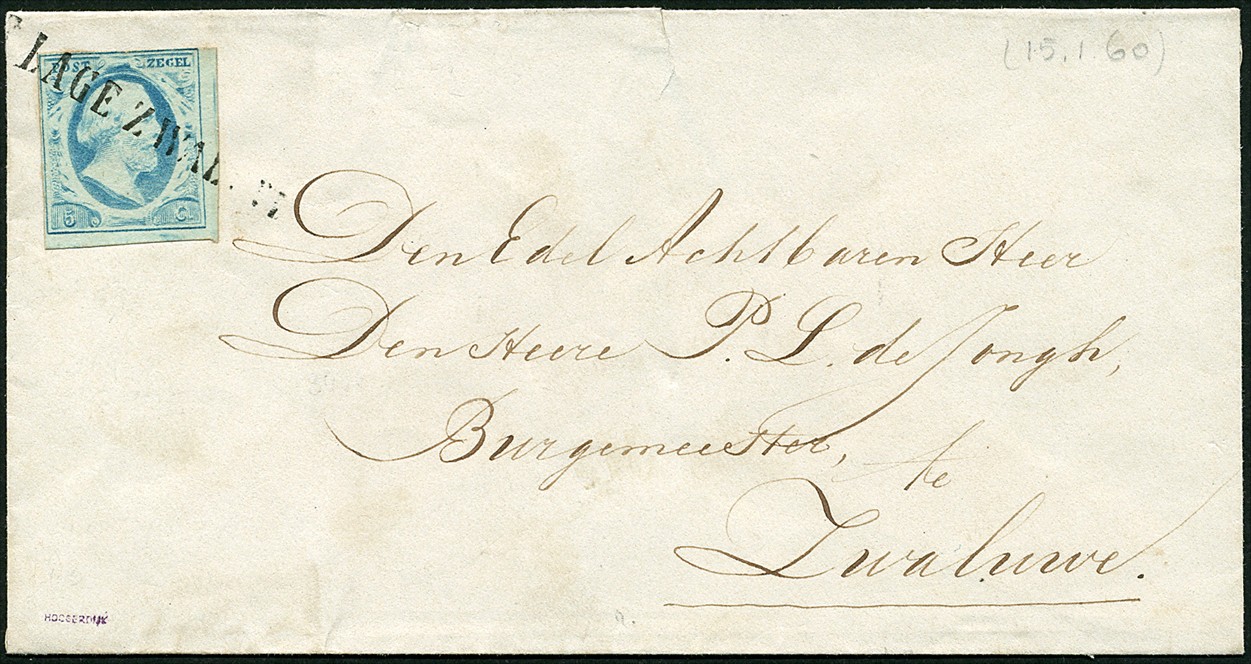 (15.1.60)
POST ZEGEL
LAGE ZWAL
5 C.
Den Edel Achtbaren Heer
Den Heere P. L. de Jongh,
Burgemeester,
te
Zwaluwe.
HOOGERDIJK